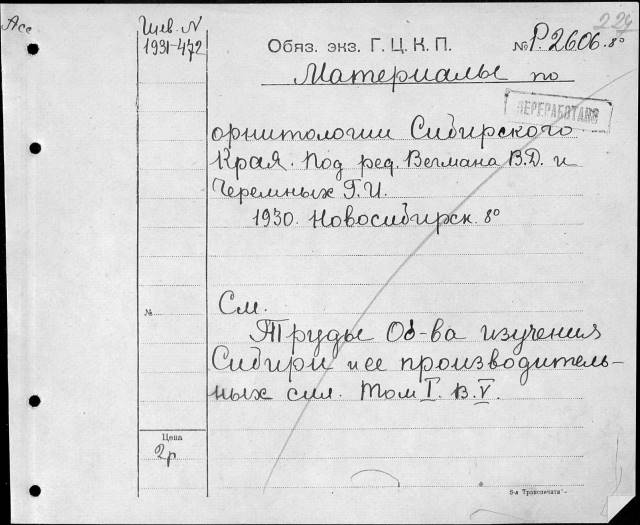 Асс
Шев. N
1931-472
224
Обяз. экз. Г. Ц. К. П.
№ Р. 2606. 8°
Материалы по
ПЕРЕРАБОТАНО
орнитологии Сибирского
Края. Под ред. Вегмана В.Д. и
Черемных Г.И.
1930. Новосибирск. 8°
№
См.
Труды Об-ва изучения
Сибири и ее производитель-
ных сил. Том I. В. V.
Цена
2р
5-я Транспечати"-